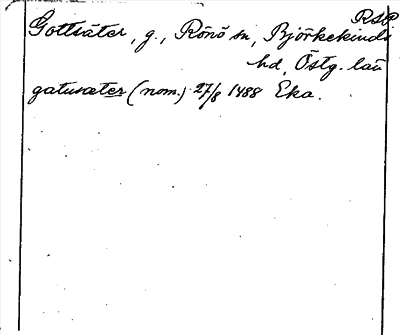 RSP
Gottsäter, g., Rönö sn, Björkekinds
hd, Östg. län
gatusæter (nom.) 27/8 1488 Eka.